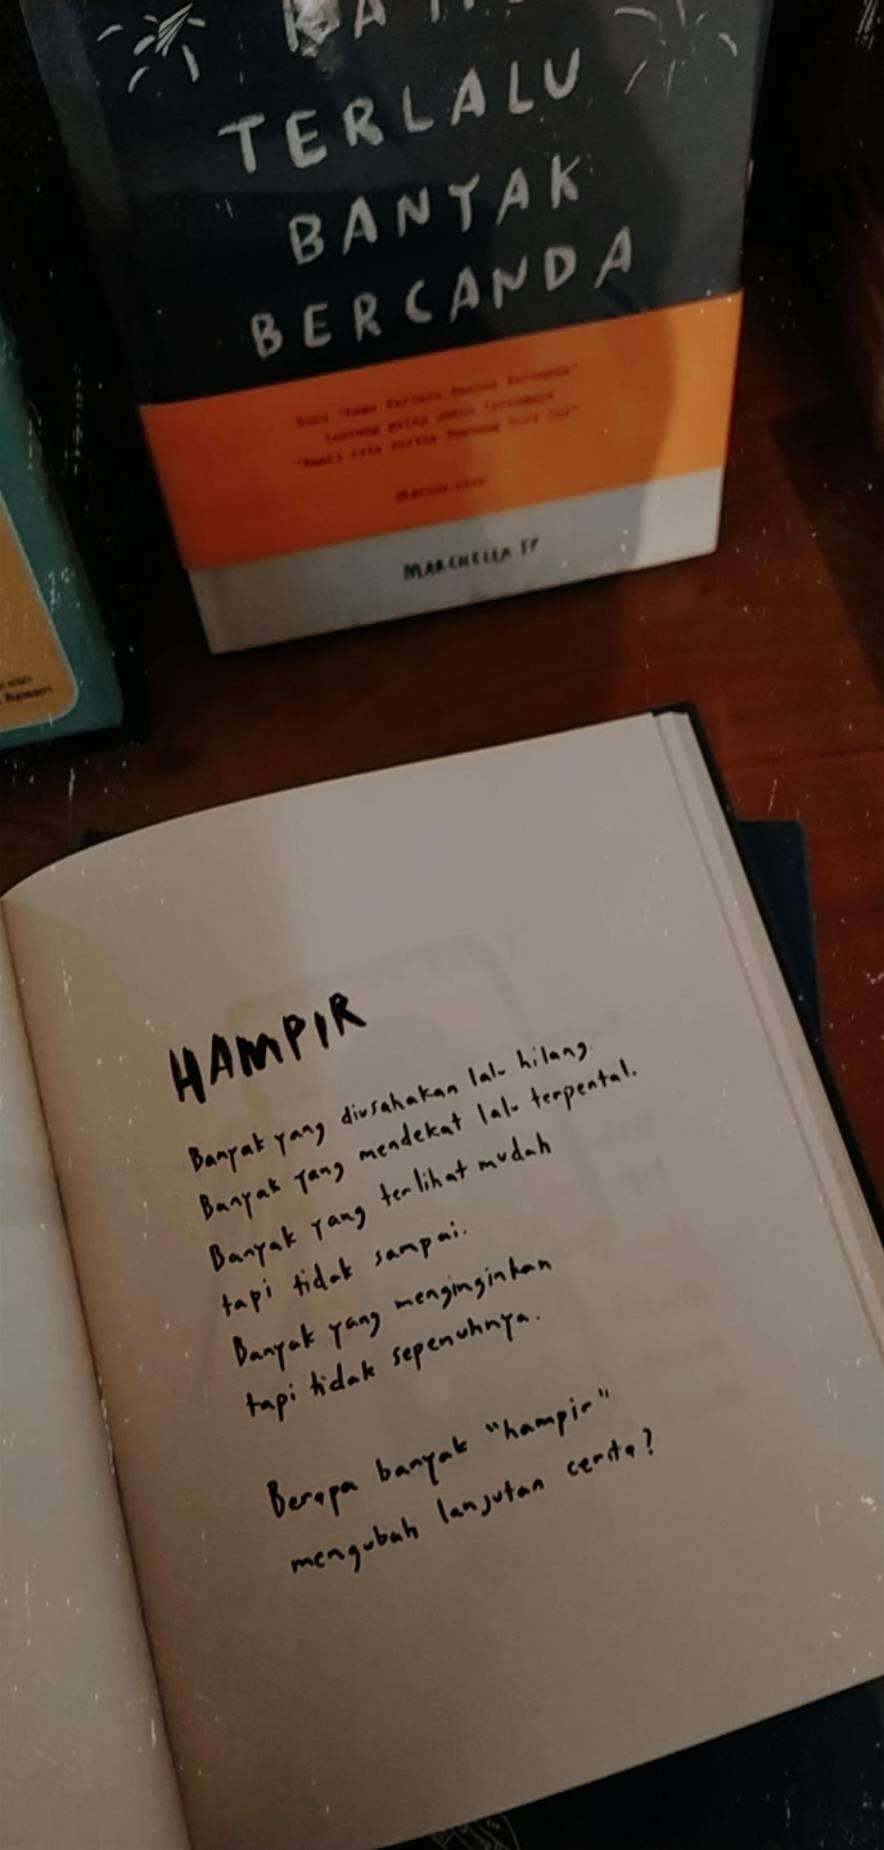 TERLALU
BANYAK
BERCANDA
MARCHELLA FP
HAMPIR
Banyak yang diusahakan lalu hilang.
Banyak yang mendekat lalu terpental.
Banyak yang terlihat mudah
tapi tidak sampai.
Banyak yang menginginkan
tapi tidak sepenuhnya.
Berapa banyak "hampir"
mengubah lanjutan cerita?